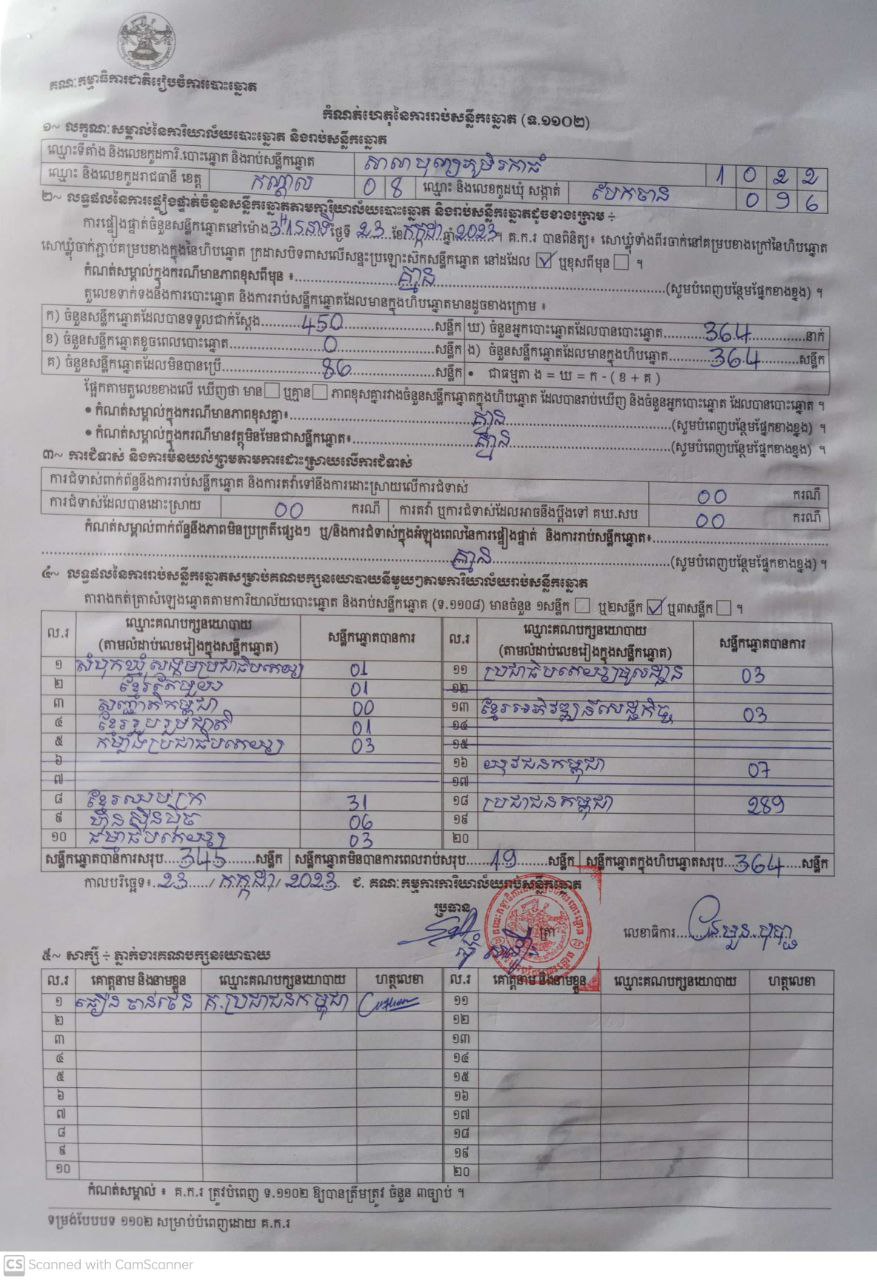 គណៈកម្មាធិការជាតិរៀបចំការបោះឆ្នោត
កំណត់ហេតុនៃការរាប់សន្លឹកឆ្នោត (ទ.១១០២)
១~ លក្ខណៈសម្គាល់នៃការិយាល័យបោះឆ្នោត និងរាប់សន្លឹកឆ្នោត
ឈ្មោះទីតាំង និងលេខកូដការិ.បោះឆ្នោត និងរាប់សន្លឹកឆ្នោត សាលាបុណ្យភូមិរកាធំ 1 0 2 2
ឈ្មោះ និងលេខកូដរាជធានី ខេត្ត កណ្តាល 0 8 ឈ្មោះ និងលេខកូដឃុំ សង្កាត់ បែកចាន 0 9 6
២~ លទ្ធផលនៃការផ្ទៀងផ្ទាត់ចំនួនសន្លឹកឆ្នោតតាមការិយាល័យបោះឆ្នោត និងរាប់សន្លឹកឆ្នោតដូចខាងក្រោម ÷
ការផ្ទៀងផ្ទាត់ចំនួនសន្លឹកឆ្នោតនៅម៉ោង 3H 15នាទី ថ្ងៃទី 23 ខែ កក្កដា ឆ្នាំ 2023។ គ.ក.រ បានពិនិត្យ៖ សោឃ្លុំទាំងពីរចាក់នៅគម្របខាងក្រៅនៃហិបឆ្នោត
សោឃ្លុំចាក់ភ្ជាប់គម្របខាងក្នុងនៃហិបឆ្នោត ក្រដាសបិទពាសលើសន្ទះប្រឡោះស៊កសន្លឹកឆ្នោត នៅដដែល ☑ ឬខុសពីមុន ☐ ។
កំណត់សម្គាល់ក្នុងករណីមានភាពខុសពីមុន ៖ គ្មាន (សូមបំពេញបន្ថែមផ្នែកខាងខ្នង) ។
តួលេខទាក់ទងនឹងការបោះឆ្នោត និងការរាប់សន្លឹកឆ្នោតដែលមានក្នុងហិបឆ្នោតមានដូចខាងក្រោម ៖
ក) ចំនួនសន្លឹកឆ្នោតដែលបានទទួលជាក់ស្តែង 450 សន្លឹក ឃ) ចំនួនអ្នកបោះឆ្នោតដែលបានបោះឆ្នោត 364 នាក់
ខ) ចំនួនសន្លឹកឆ្នោតខូចពេលបោះឆ្នោត 0 សន្លឹក ង) ចំនួនសន្លឹកឆ្នោតដែលមានក្នុងហិបឆ្នោត 364 សន្លឹក
គ) ចំនួនសន្លឹកឆ្នោតដែលមិនបានប្រើ 86 សន្លឹក • ជាធម្មតា ង = ឃ = ក - ( ខ + គ )
ផ្អែកតាមតួលេខខាងលើ ឃើញថា មាន ☐ ឬគ្មាន ☐ ភាពខុសគ្នារវាងចំនួនសន្លឹកឆ្នោតក្នុងហិបឆ្នោត ដែលបានរាប់ឃើញ និងចំនួនអ្នកបោះឆ្នោត ដែលបានបោះឆ្នោត ។
• កំណត់សម្គាល់ក្នុងករណីមានភាពខុសគ្នា៖ គ្មាន (សូមបំពេញបន្ថែមផ្នែកខាងខ្នង) ។
• កំណត់សម្គាល់ក្នុងករណីមានវត្ថុមិនមែនជាសន្លឹកឆ្នោត៖ គ្មាន (សូមបំពេញបន្ថែមផ្នែកខាងខ្នង) ។
៣~ ការជំទាស់ និងការមិនយល់ព្រមតាមការដោះស្រាយលើការជំទាស់
ការជំទាស់ពាក់ព័ន្ធនឹងការរាប់សន្លឹកឆ្នោត និងការតវ៉ាទៅនឹងការដោះស្រាយលើការជំទាស់ 00 ករណី
ការជំទាស់ដែលបានដោះស្រាយ 00 ករណី ការតវ៉ា ឬការជំទាស់ដែលអាចនឹងប្តឹងទៅ គឃ.សប 00 ករណី
កំណត់សម្គាល់ពាក់ព័ន្ធនឹងភាពមិនប្រក្រតីផ្សេងៗ ឬ/និងការជំទាស់ក្នុងអំឡុងពេលនៃការផ្ទៀងផ្ទាត់ និងការរាប់សន្លឹកឆ្នោត៖
គ្មាន (សូមបំពេញបន្ថែមផ្នែកខាងខ្នង) ។
៤~ លទ្ធផលនៃការរាប់សន្លឹកឆ្នោតសម្រាប់គណបក្សនយោបាយនីមួយៗតាមការិយាល័យរាប់សន្លឹកឆ្នោត
តារាងកត់ត្រាសំឡេងឆ្នោតតាមការិយាល័យបោះឆ្នោត និងរាប់សន្លឹកឆ្នោត (ទ.១១០៨) មានចំនួន ១សន្លឹក ☐ ឬ២សន្លឹក ☑ ឬ៣សន្លឹក ☐ ។
ល.រ ឈ្មោះគណបក្សនយោបាយ (តាមលំដាប់លេខរៀងក្នុងសន្លឹកឆ្នោត) សន្លឹកឆ្នោតបានការ ល.រ ឈ្មោះគណបក្សនយោបាយ (តាមលំដាប់លេខរៀងក្នុងសន្លឹកឆ្នោត) សន្លឹកឆ្នោតបានការ
១ សំបុកឃ្មុំសង្គមប្រជាធិបតេយ្យ 01 ១១ ប្រជាធិបតេយ្យមូលដ្ឋាន 03
២ ខ្មែរតែមួយ 01 ១២
៣ ស្រលាញ់ជាតិកម្ពុជា 00 ១៣ ខ្មែរអភិវឌ្ឍន៍សេដ្ឋកិច្ច 03
៤ ខ្មែររួបរួមជាតិ 01 ១៤
៥ កម្លាំងប្រជាធិបតេយ្យ 03 ១៥
៦ ១៦ យុវជនកម្ពុជា 07
៧ ១៧
៨ ខ្មែរឈប់ក្រ 31 ១៨ ប្រជាជនកម្ពុជា 289
៩ ហ៊្វុនស៊ិនប៉ិច 06 ១៩
១០ ធម្មាធិបតេយ្យ 03 ២០
សន្លឹកឆ្នោតបានការសរុប 345 សន្លឹក សន្លឹកឆ្នោតមិនបានការពេលរាប់សរុប 19 សន្លឹក សន្លឹកឆ្នោតក្នុងហិបឆ្នោតសរុប 364 សន្លឹក
កាលបរិច្ឆេទ៖ 23 / កក្កដា / 2023 ជ. គណៈកម្មការការិយាល័យរាប់សន្លឹកឆ្នោត
ប្រធាន
ត្រា លេខាធិការ
៥~ សាក្សី ÷ ភ្នាក់ងារគណបក្សនយោបាយ
ល.រ គោត្តនាម និងនាមខ្លួន ឈ្មោះគណបក្សនយោបាយ ហត្ថលេខា ល.រ គោត្តនាម និងនាមខ្លួន ឈ្មោះគណបក្សនយោបាយ ហត្ថលេខា
១ គ.ប្រជាជនកម្ពុជា ១១
២ ១២
៣ ១៣
៤ ១៤
៥ ១៥
៦ ១៦
៧ ១៧
៨ ១៨
៩ ១៩
១០ ២០
កំណត់សម្គាល់ ៖ គ.ក.រ ត្រូវបំពេញ ទ.១១០២ ឱ្យបានត្រឹមត្រូវ ចំនួន ៣ច្បាប់ ។
ទម្រង់បែបបទ ១១០២ សម្រាប់បំពេញដោយ គ.ក.រ
CS Scanned with CamScanner